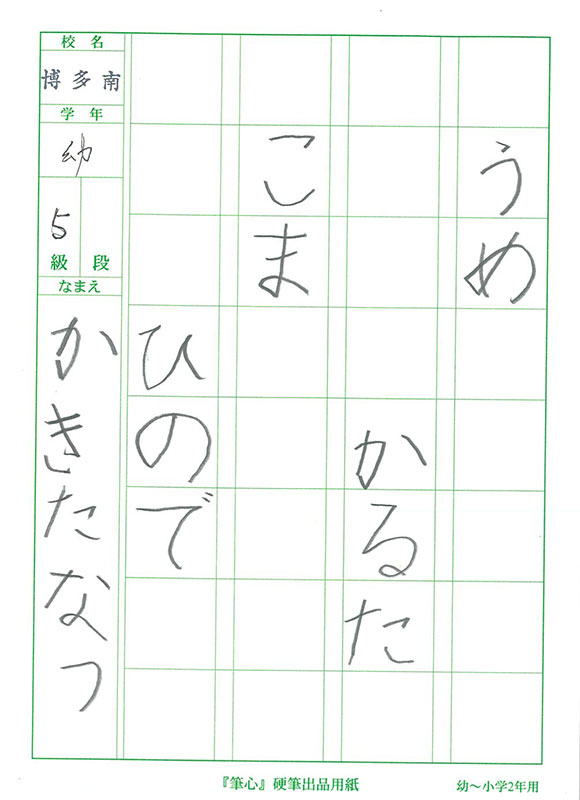 うめ
かるた
こま
ひので
校名
博多南
学年
幼
5
級
段
なまえ
かきたなつ
『筆心』硬筆出品用紙
幼〜小学2年用